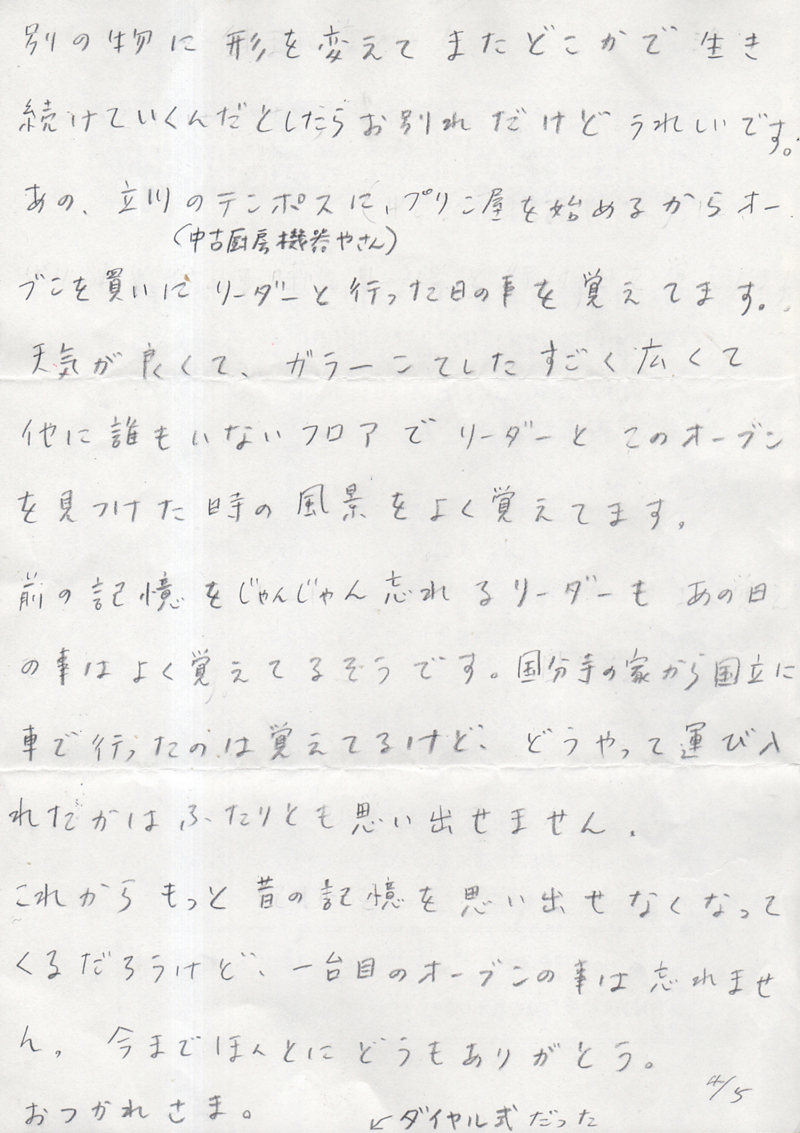 別の物に形を変えてまたどこかで生き
続けていくんだとしたらお別れだけどうれしいです。
あの、立川のテンポスに、プリン屋を始めるからオー
(中古厨房機器やさん)
ブンを買いにリーダーと行った日の事を覚えてます。
天気が良くて、ガラーンてしたすごく広くて
他に誰もいないフロアでリーダーとこのオーブン
を見つけた時の風景をよく覚えてます。
前の記憶をじゃんじゃん忘れるリーダーもあの日
の事はよく覚えてるそうです。国分寺の家から国立に
車で行ったのは覚えてるけど、どうやって運び入
れたかはふたりとも思い出せません。
これからもっと昔の記憶を思い出せなくなって
くるだろうけど、一台目のオーブンの事は忘れませ
ん。今までほんとにどうもありがとう。
おつかれさま。
4/5
↙ダイヤル式だった